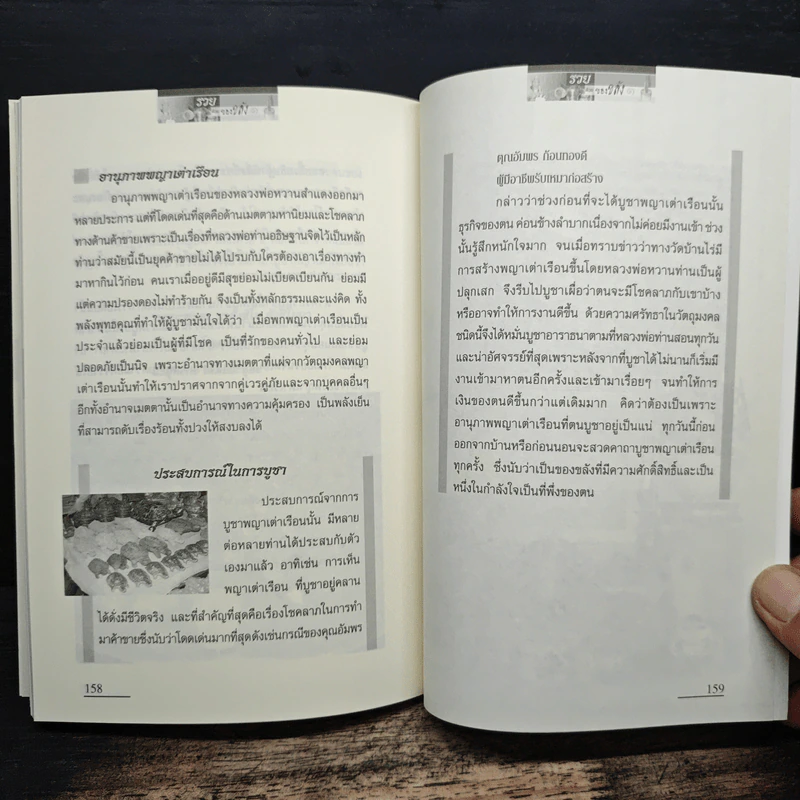 รวย
ของขลัง
อานุภาพพญาเต่าเรือน
อานุภาพพญาเต่าเรือนของหลวงพ่อหวานสำแดงออกมา
หลายประการ แต่ที่โดดเด่นที่สุดคือด้านเมตตามหานิยมและโชคลาภ
ทางด้านค้าขายเพราะเป็นเรื่องที่หลวงพ่อท่านอธิษฐานจิตไว้เป็นหลัก
ท่านว่าสมัยนี้เป็นยุคค้าขายไม่ได้ไปรบกับใครต้องเอาเรื่องทางทำ
มาหากินไว้ก่อน คนเราเมื่ออยู่ดีมีสุขย่อมไม่เบียดเบียนกัน ย่อมมี
แต่ความปรองดองไม่ทำร้ายกัน จึงเป็นทั้งหลักธรรมและแง่คิด ทั้ง
พลังพุทธคุณที่ทำให้ผู้บูชามั่นใจได้ว่า เมื่อพกพญาเต่าเรือนเป็น
ประจำแล้วย่อมเป็นผู้ที่มีโชค เป็นที่รักของคนทั่วไป และย่อม
ปลอดภัยเป็นนิจ เพราะอำนาจทางเมตตาที่แผ่จากวัตถุมงคลพญา
เต่าเรือนนั้นทำให้เราปราศจากจากคู่เวรคู่ภัยและจากบุคคลอื่นๆ
อีกทั้งอำนาจเมตตานั้นเป็นอำนาจทางความคุ้มครอง เป็นพลังเย็น
ที่สามารถดับเรื่องร้อนทั้งปวงให้สงบลงได้
ประสบการณ์ในการบูชา
ประสบการณ์จากการ
บูชาพญาเต่าเรือนนั้น มีหลาย
ต่อหลายท่านได้ประสบกับตัว
เองมาแล้ว อาทิเช่น การเห็น
พญาเต่าเรือน ที่บูชาอยู่คลาน
ได้ดั่งมีชีวิตจริง และที่สำคัญที่สุดคือเรื่องโชคลาภในการทำ
มาค้าขายซึ่งนับว่าโดดเด่นมากที่สุดดังเช่นกรณีของคุณอัมพร
158
รวย
ของขลัง
คุณอัมพร ก้อนทองดี
ผู้มีอาชีพรับเหมาก่อสร้าง
กล่าวว่าช่วงก่อนที่จะได้บูชาพญาเต่าเรือนนั้น
ธุรกิจของตน ค่อนข้างลำบากเนื่องจากไม่ค่อยมีงานเข้า ช่วง
นั้นรู้สึกหนักใจมาก จนเมื่อทราบข่าวว่าทางวัดบ้านไร่มี
การสร้างพญาเต่าเรือนขึ้นโดยหลวงพ่อหวานท่านเป็นผู้
ปลุกเสก จึงรีบไปบูชาเผื่อว่าตนจะมีโชคลาภกับเขาบ้าง
หรืออาจทำให้การงานดีขึ้น ด้วยความศรัทธาในวัตถุมงคล
ชนิดนี้จึงได้หมั่นบูชาอาราธนาตามที่หลวงพ่อท่านสอนทุกวัน
และน่าอัศจรรย์ที่สุดเพราะหลังจากที่บูชาได้ไม่นานก็เริ่มมี
งานเข้ามาหาตนอีกครั้งและเข้ามาเรื่อยๆ จนทำให้การ
เงินของตนดีขึ้นกว่าแต่เดิมมาก คิดว่าต้องเป็นเพราะ
อานุภาพพญาเต่าเรือนที่ตนบูชาอยู่เป็นแน่ ทุกวันนี้ก่อน
ออกจากบ้านหรือก่อนนอนจะสวดคาถาบูชาพญาเต่าเรือน
ทุกครั้ง ซึ่งนับว่าเป็นของขลังที่มีความศักดิ์สิทธิ์และเป็น
หนึ่งในกำลังใจเป็นที่พึ่งของตน
159